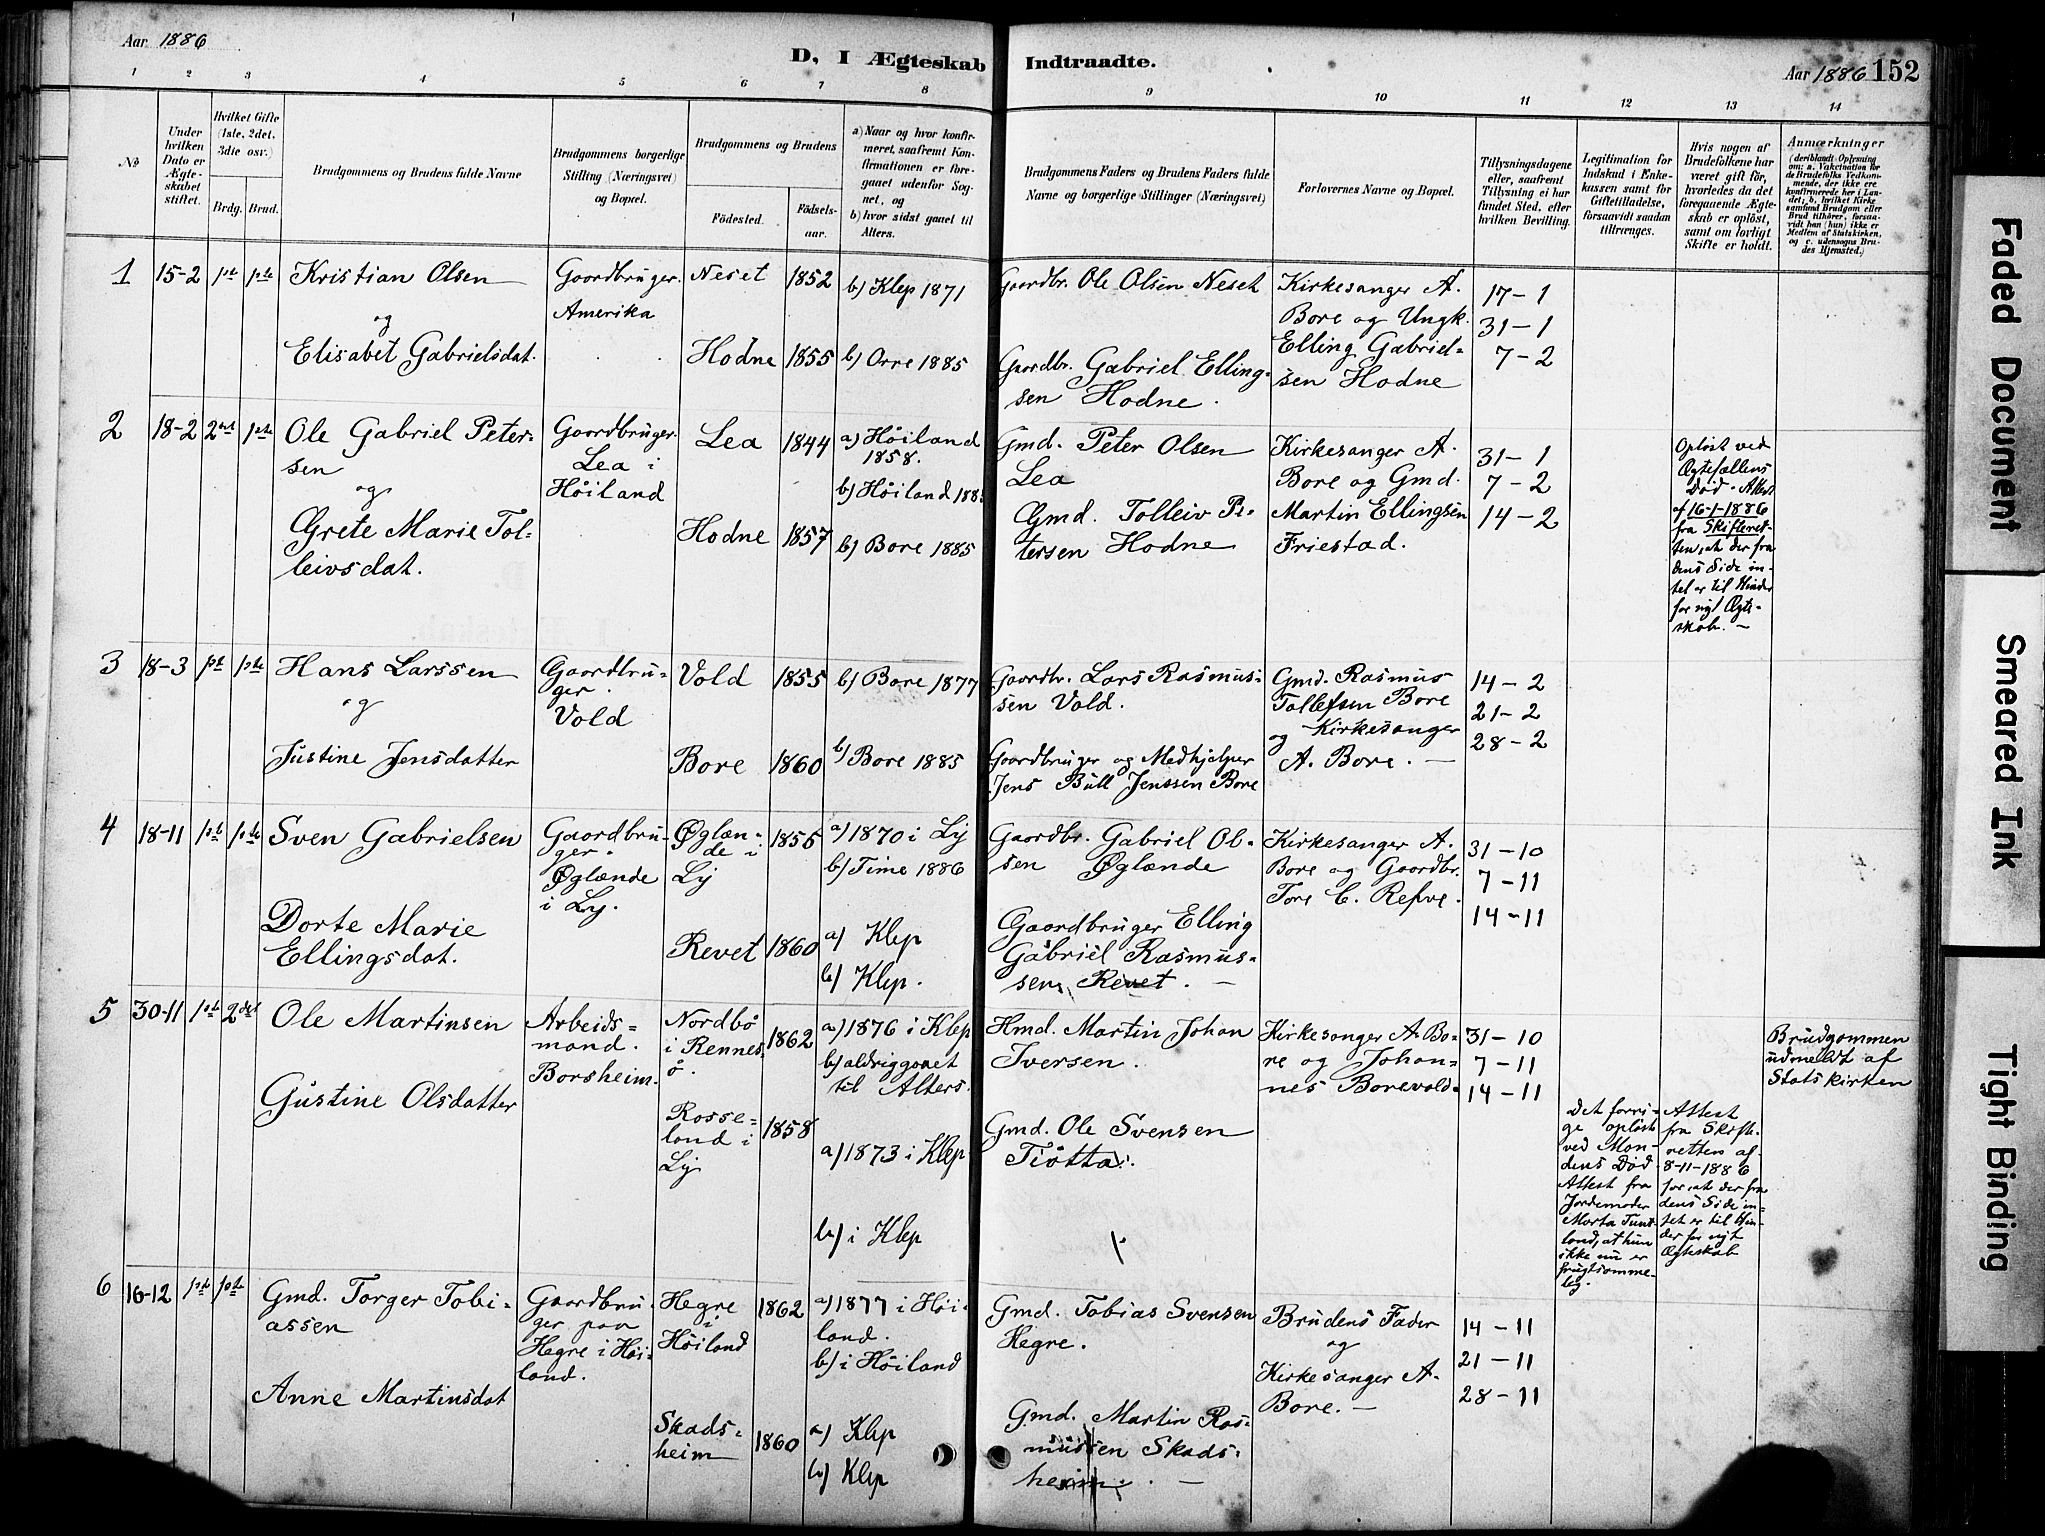 Aar 1886
D, I Ægteskab Indtraadte.
Aar 1886 152
1 2 3 4 5 6 7 8 9 10 11 12 13 14
No
Under hvilken Dato er Ægteskabet stiftet.
Hvilket Gifte (1ste, 2det, 3die osv.)
Brdg. Brud.
Brudgommens og Brudens fulde Navne
Brudgommens borgerlige Stilling (Næringsvei) og Bopæl.
Brudgommens og Brudens
Födested.
Födselsaar.
a) Naar og hvor konfirmeret, saafremt Konfirmationen er foregaaet udenfor Sognet, og
b) hvor sidst gaaet til Alters.
Brudgommens Faders og Brudens Faders fulde Navne og borgerlige Stillinger (Næringsvei)
Forlovernes Navne og Bopæl.
Tillysningsdagene eller, saafremt Tillysning ei har fundet Sted, efter hvilken Bevilling.
Legitimation for Indskud i Enkekassen samt for Giftetilladelse, forsaavidt saadan tiltrænges.
Hvis nogen af Brudefolkene har været gift för, hvorledes da det foregaaende Ægteskab er oplöst, samt om lovligt Skifte er holdt.
Anmærkninger
(deriblandt Oplysning om: a. Vakcination for de Brudefolks Vedkommende, der ikke ere konfirmerede her i Landet; b. hvilket Kirkesamfund Brudgom eller Brud tilhörer, forsaavidt han (hun) ikke er Medlem af Statskirken, og c. udensogns Brudes Hjemsted.)
1 15-2 1ste 1ste
Kristian Olsen
og
Elisabet Gabrielsdat.
Gaardbruger.
Amerika
Neset 1852
b) Klep 1871
Hodne 1855
b) Orre 1885
Gaardbr. Ole Olsen Neset
Gaardbr. Gabriel Elling-
sen Hodne.
Kirkesanger A.
Bore og Ungk.
Elling Gabriel-
sen Hodne
17-1
31-1
7-2
2 18-2 2det 1ste
Ole Gabriel Peter-
sen
og
Grete Marie Tol-
leivsdat.
Gaardbruger.
Lea i
Höiland
Lea 1844
a) Höiland
1858.
b) Höiland
Hodne 1857
b) Bore 1885
Gmd. Peter Olsen
Lea
Gmd. Tolleiv Pe-
tersen Hodne
Kirkesanger A.
Bore og Gmd.
Martin Ellingsen
Friestad.
31-1
7-2
14-2
Oplöst ved
Ægtefællens
Död. Attest
af 16-1-1886
fra Skifteret-
ten, at der fra
dens Side in-
tet er til Hinder
for nyt Ægte-
skab. -
3 18-3 1ste 1ste
Hans Larssen
og
Justine Jensdatter
Gaardbru-
ger.
Vold
Vold 1855
b) Bore 1877
Bore 1860
b) Bore 1885
Gaardbr. Lars Rasmus-
sen Vold.
Gaardbruger og Medhjelper
Jens Bull Jenssen Bore
Gmd. Rasmus
Tollefsen Bore
og Kirkesanger
A. Bore. -
14-2
21-2
28-2
4 18-11 1ste 1ste
Sven Gabrielsen
Dorte Marie
Ellingsdat.
Gaardbru-
ger.
Øglænde
i Ly.
Øglæn-
de i
Ly
1855
a) 1870 i Ly
b) Time 1886
Revet 1860
a) Klep
b) Klep.
Gaardbr. Gabriel Ol-
sen Øglænde
Gaardbruger Elling
Gabriel Rasmus-
sen Revet. -
Kirkesanger A.
Bore og Gaardbr.
Tore C. Refve.
31-10
7-11
14-11
5 30-11 1ste 2det
Ole Martinsen
Gustine Olsdatter
Arbeids-
mand.
Borsheim.
Nordbö
i Rennes-
ö.
1862
a) 1876 i Klep
b) aldrig gaaet
til Alters.
Rosse-
land i
Ly
1858
a) 1873 i Klep
b) i Klep
Hmd. Martin Johan
Iversen.
Gmd. Ole Svensen
Tiötta.
Kirkesanger A. Bo-
re og Johan-
nes Borevold.
31-10
7-11
14-11
Det forri-
ge oplöst
ved Man-
dens Död
Attest fra
Jordemoder
Marta Tunt-
land, at hun
ikke nu er
frugtsomme-
lig.
Attest
fra Skifte-
retten af
8-11-1886
for, at der fra
dens Side in-
tet er til Hin-
der for nyt
Ægteskab
Brudgommen
udmeldt af
Statskirken
6 16-12 1ste 1ste
Gmd. Torger Tobi-
assen
Anne Martinsdat
Gaardbru-
ger paa
Hegre i Höi-
land.
Hegre
i
Höiland
1862
a) 1877 i Höi-
land.
b) i Höiland
Skads-
heim
1860
a) Klep
b) Klep
Gmd. Tobias Svensen
Hegre.
Gmd. Martin Ras-
mussen Skads-
heim. -
Brudens Fader
og
Kirkesanger A.
Bore. -
14-11
21-11
28-11
Faded Document
Smeared Ink
Tight Binding